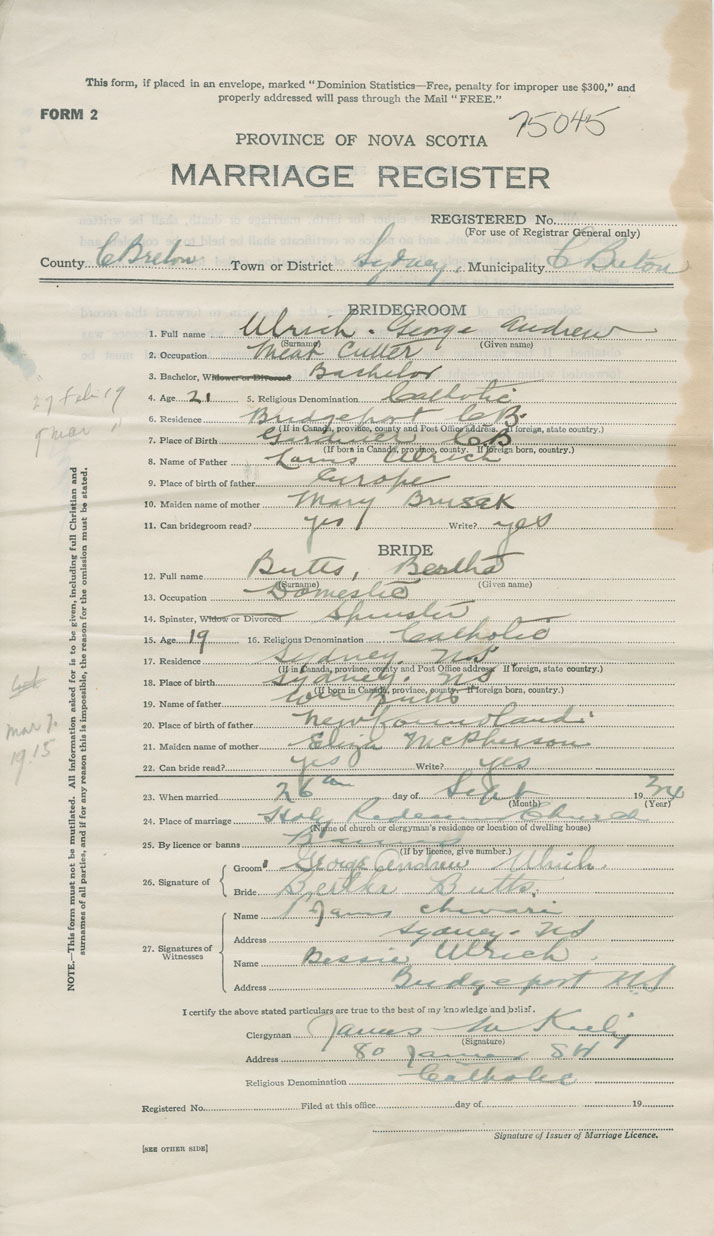 This form, if placed in an envelope, marked "Dominion Statistics—Free, penalty for improper use $300," and
properly addressed will pass through the Mail "FREE."
FORM 2
75045
PROVINCE OF NOVA SCOTIA
MARRIAGE REGISTER
REGISTERED No.
(For use of Registrar General only)
County C Breton Town or District Sydney, Municipality C Breton
BRIDEGROOM
1. Full name Ulrich. George Andrew
(Surname) (Given name)
2. Occupation Meat Cutter
3. Bachelor, Widower or Divorced Bachelor
4. Age 21 5. Religious Denomination Catholic
6. Residence Bridgeport C.B.
(If in Canada, province, county and Post Office address. If foreign, state country.)
7. Place of Birth Gardiner CB
(If born in Canada, province, county. If foreign born, country.)
8. Name of Father Louis Ulrich
9. Place of birth of father Europe
10. Maiden name of mother Mary Brusek
11. Can bridegroom read? yes Write? yes
BRIDE
12. Full name Butts, Bertha
(Surname) (Given name)
13. Occupation Domestic
14. Spinster, Widow or Divorced Spinster
15. Age 19 16. Religious Denomination Catholic
17. Residence Sydney. NS
(If in Canada, province, county and Post Office address. If foreign, state country.)
18. Place of birth Sydney. NS
(If born in Canada, province, county. If foreign born, country.)
19. Name of father Wm Butts
20. Place of birth of father Newfoundland
21. Maiden name of mother Eliza McPherson
22. Can bride read? yes Write? yes
23. When married 26th day of Sept 1934
(Month) (Year)
24. Place of marriage Holy Redeemer Church
(Name of church or clergyman's residence or location of dwelling house)
25. By licence or banns Banns
(If by licence, give number.)
26. Signature of
Groom George Andrew Ulrich.
Bride Bertha Butts.
27. Signatures of Witnesses
Name James
Address Sydney. NS
Name Bessie Ulrich.
Address Bridgeport NS
I certify the above stated particulars are true to the best of my knowledge and belief.
Clergyman James
(Signature)
Address 80 James St
Religious Denomination Catholic
Registered No. Filed at this office day of 19
Signature of Issuer of Marriage Licence.
[SEE OTHER SIDE]
NOTE.—This form must not be mutilated. All information asked for is to be given, including full Christian and
surnames of all parties, and if for any reason this is impossible, the reason for the omission must be stated.
27 Feb 19
9 Mar "
Mar 7.
1915